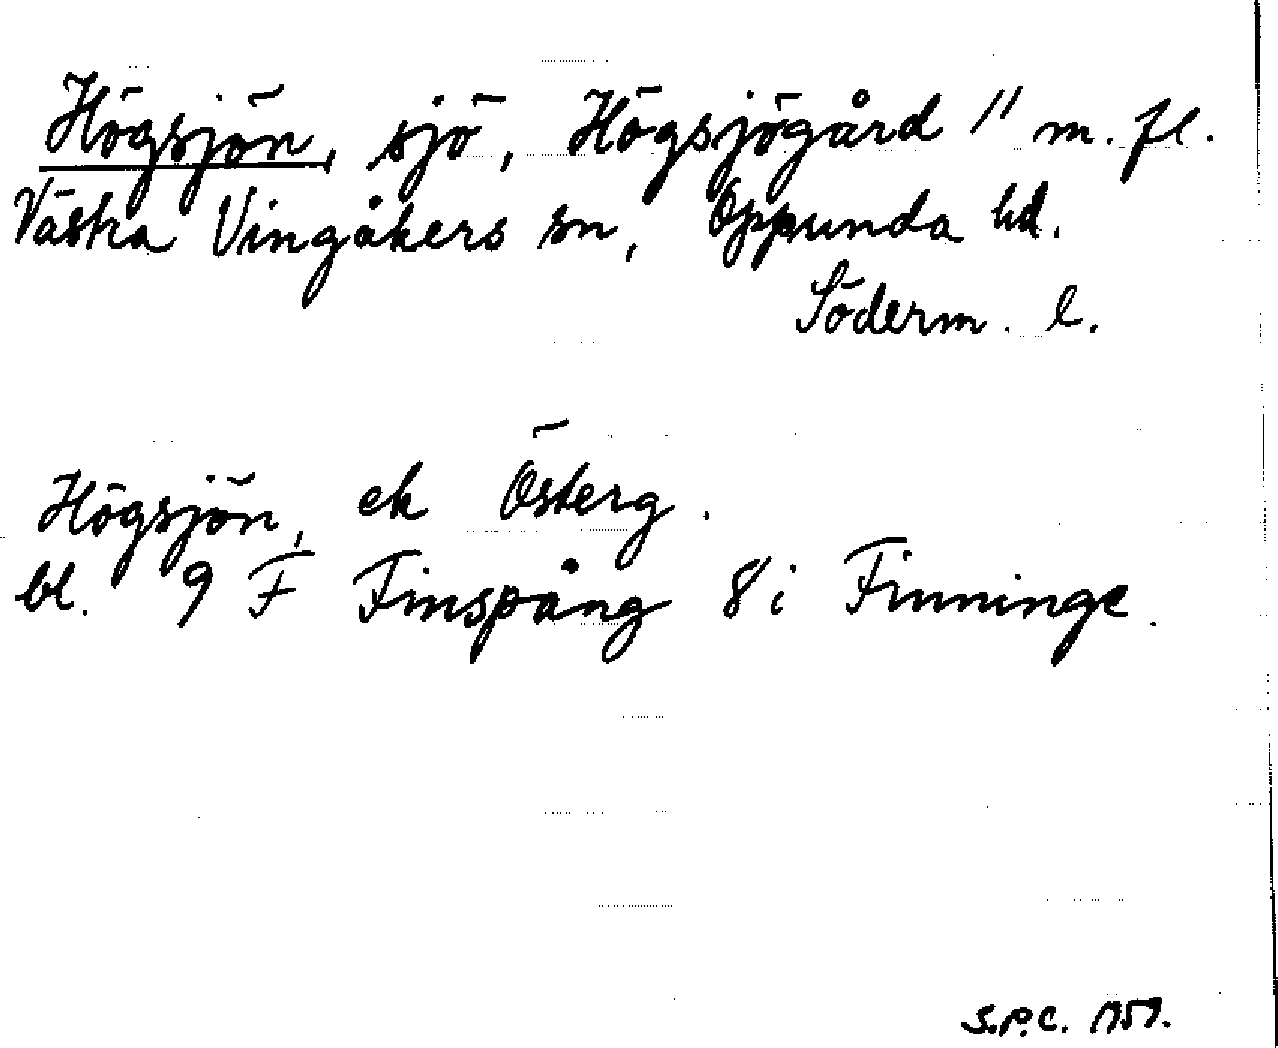 Högsjön, sjö, Högsjögård 1/1 m. fl.
Västra Vingåkers sn, Oppunda hd.
Söderm. l.
Högsjön, ek Österg.
bl. 9 F Finspång 8 i Finninge.
S.P.C. 1959.